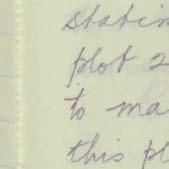 statin
plot 2
to ma
this pl